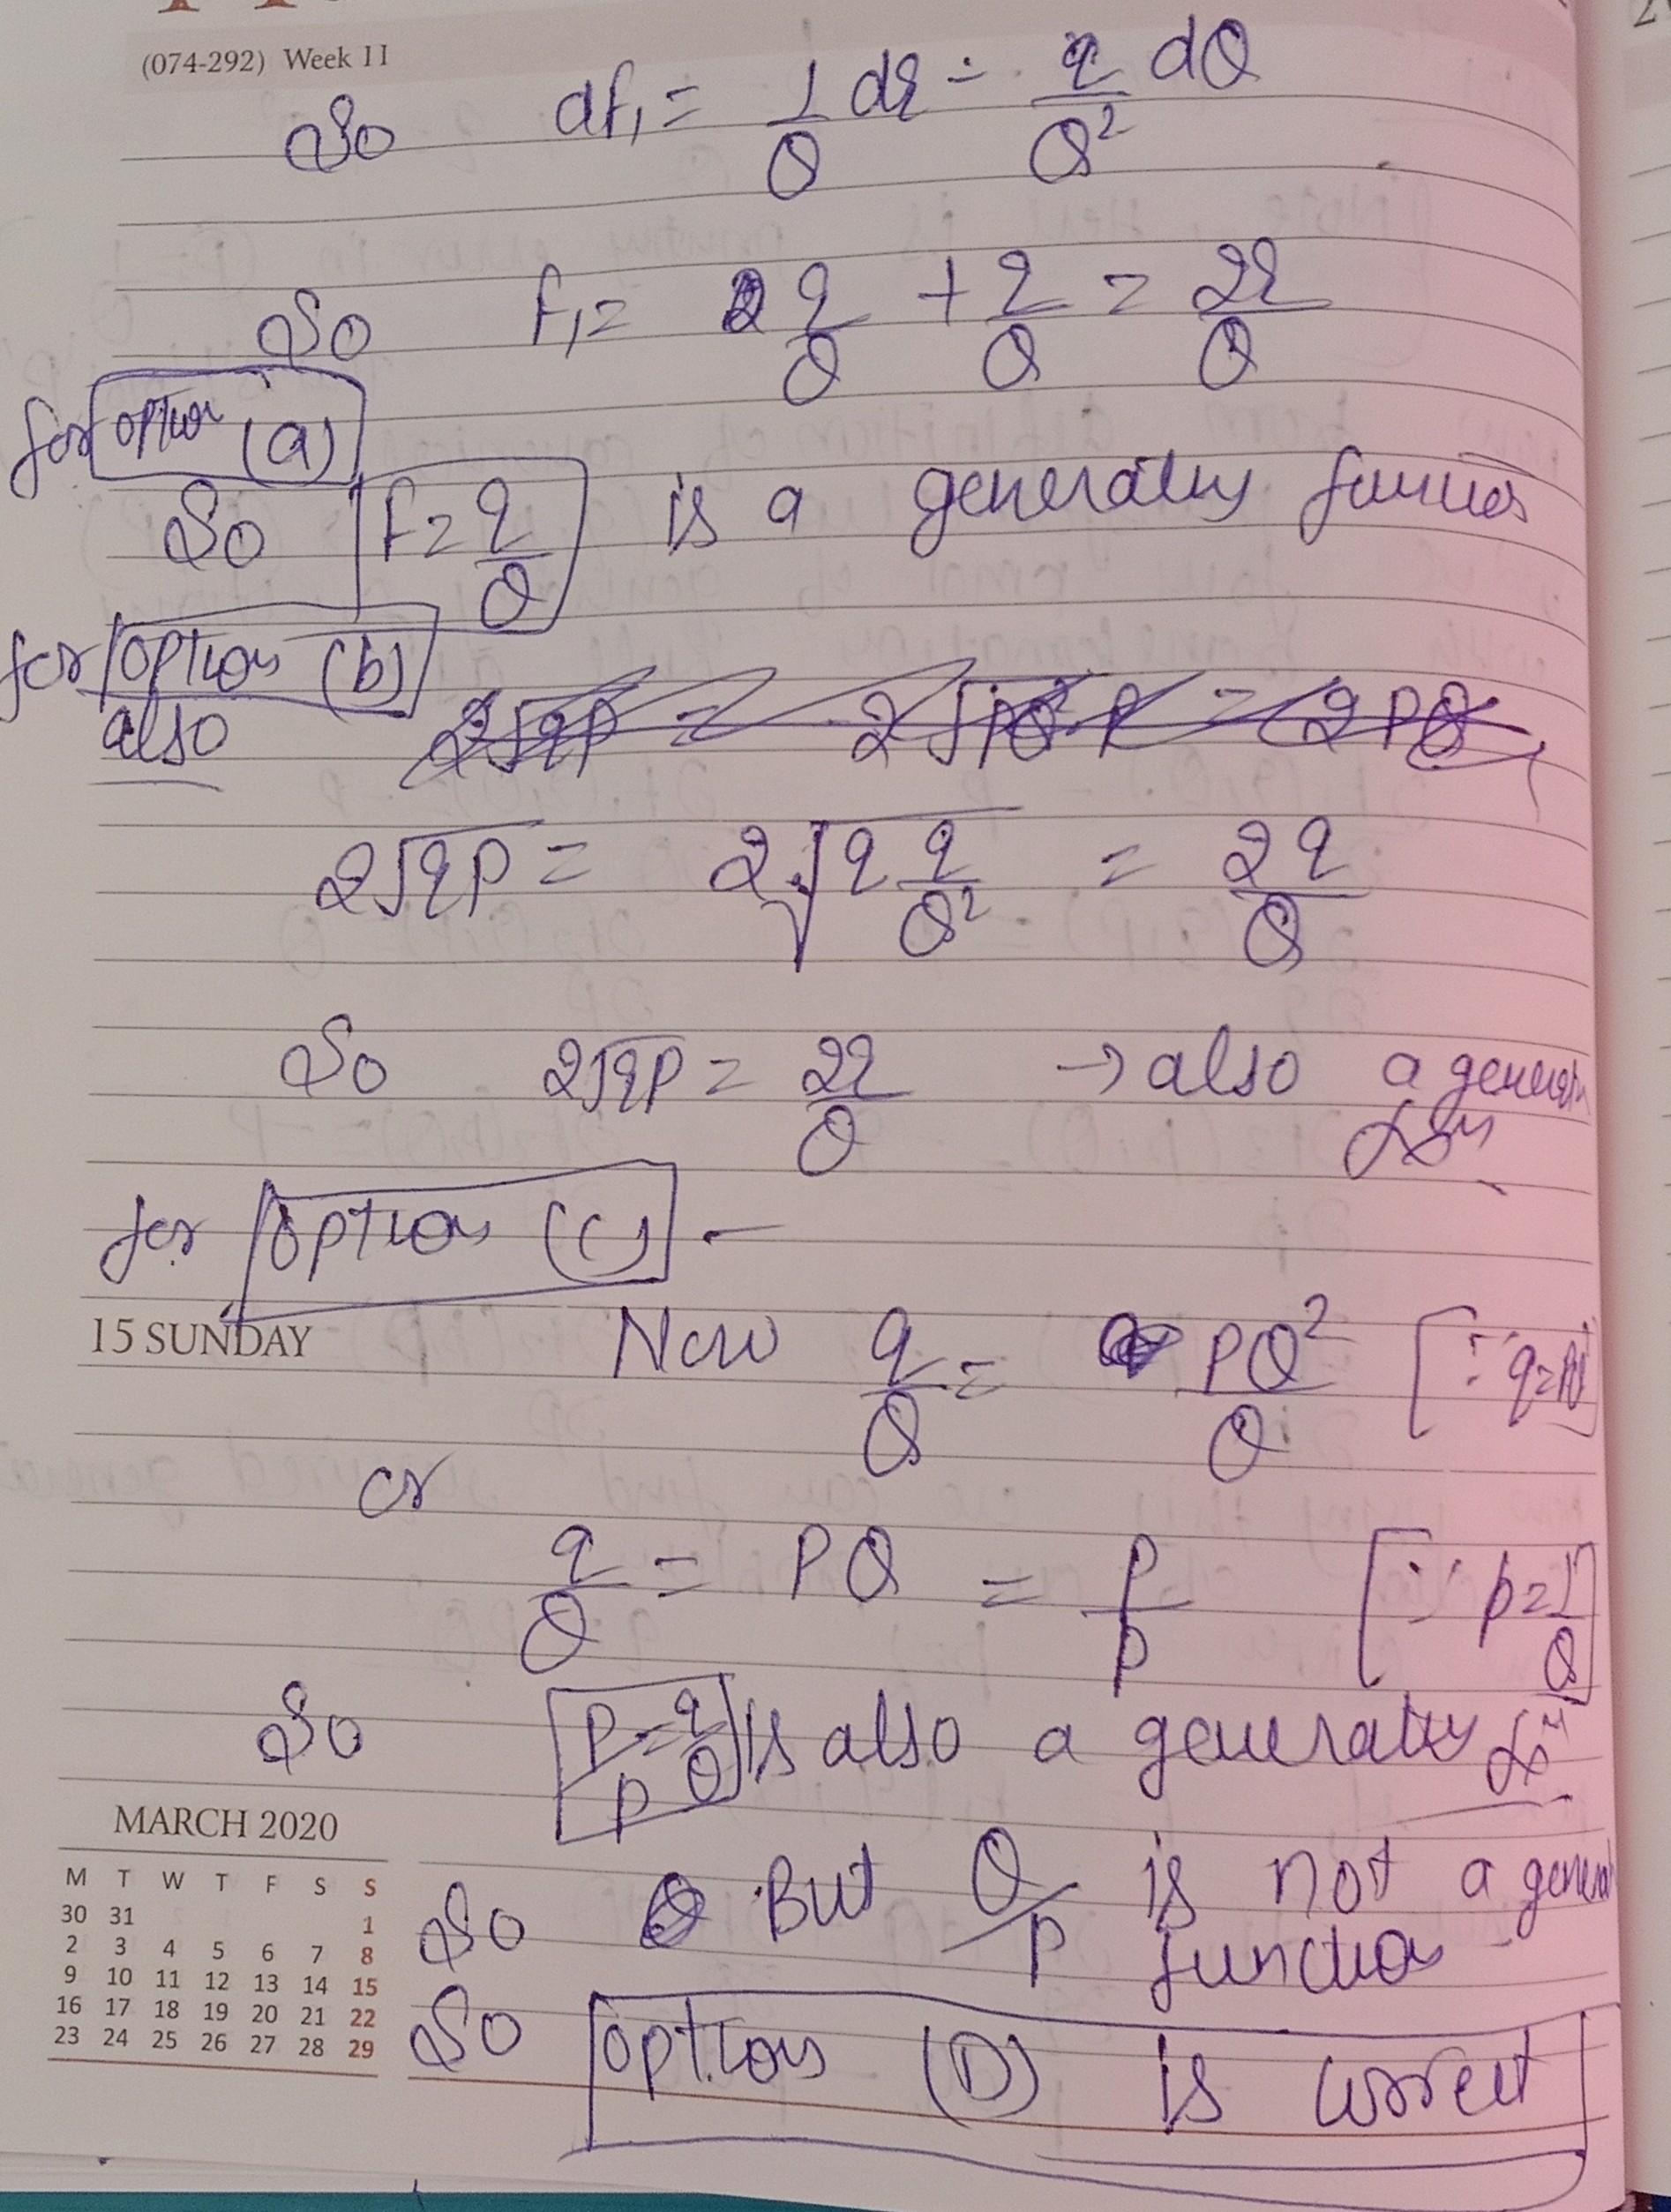 (074-292) Week 11
So dF₁ = 1/Q dq - q/Q² dQ
So F₁ = q/Q + q/Q = 2q/Q
for option (a)
So F = q/Q is a generating function
for option (b)
also 2√qP = 2√PQ² P = 2PQ
2√qP = 2√q q/Q² = 2q/Q
So 2√qP = 2q/Q → also a generating fxn
for option (c) -
15 SUNDAY
Now q/Q = PQ²/Q [∵ q=PQ²
or
q/Q = PQ = P/p [∵ p=1/Q]
So P/p = q/Q is also a generating fxn
MARCH 2020
M T W T F S S
30 31 1
2 3 4 5 6 7 8
9 10 11 12 13 14 15
16 17 18 19 20 21 22
23 24 25 26 27 28 29
So But Q/p is not a general
function
So option (D) is correct